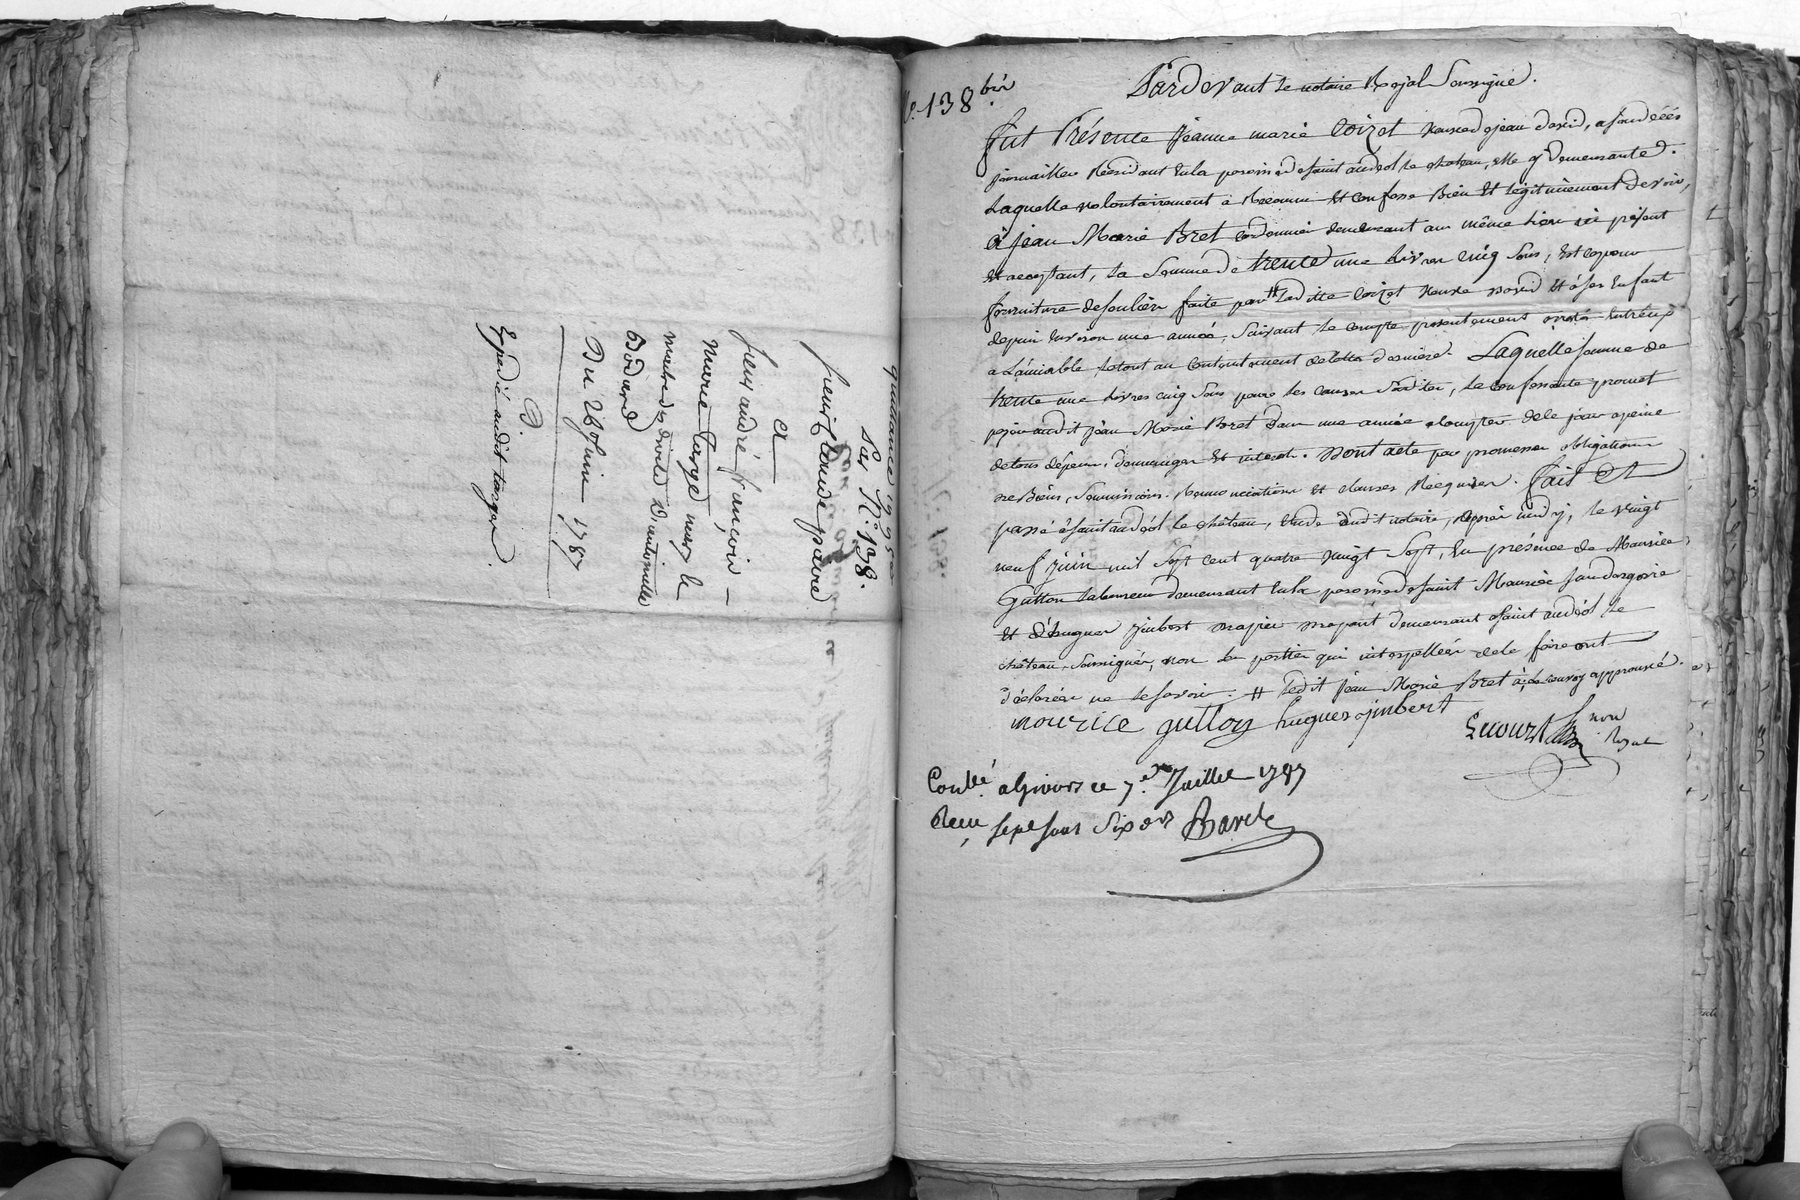 quittance 19 95
Sur N.° 138.
sieur Claude paire
et
sieur andré françois
Marie targe
Du 28 Juin 1787
D.
Expedié audit targe.
N.° 138 bis
Pardevant le notaire Royal Soussigné.
fut Présente Jeanne marie Coizet veuve de jean david,
journaillere Residant en la paroisse de saint andéol le chateau, elle y Demeurante.
Laquelle volontairement a Reconnu et confesse Bien et legitimement devoir,
à jean Marie Bret cordonnier demeurant au même lieu ici présent
et acceptant, la Somme de trente une livres cinq Sous, Est ce pour
fourniture de souliers faite par # laditte Coizet veuve David et à ses Enfant
depuis Environ une année, Suivant le compte présentement arreté entr'eux
a L'amiable le tout au contentement de cette derniere. Laquelle somme de
trente une livres cinq Sous pour les causes Susdites, la confessante promet
payer audit jean Marie Bret dans une année a compter de ce jour a peine
de tous dépens, dommages et interets. Dont acte par promesses obligations
de Biens, Soumissions. Renonciations et clauses Requises. fait et
passé à saint andéol le château, Etude dudit notaire, après midy, le vingt
neuf juin mil Sept cent quatre vingt Sept, En présence de Maurice
Gutton laboureur demeurant En la paroisse de saint Maurice sur dargoire
et d'hugues jimbert demeurant a saint andéol le
château, Soussignés, non les parties qui interpellées de le faire ont
déclarées ne le savoir. # ledit Jean Marie Bret à; le renvoy approuvé.
mourice gutton hugues jimbert
Lecourt non Royal
Conllé a Givors ce 7.e Juillet 1787
Recu sept sous Six drs Barel